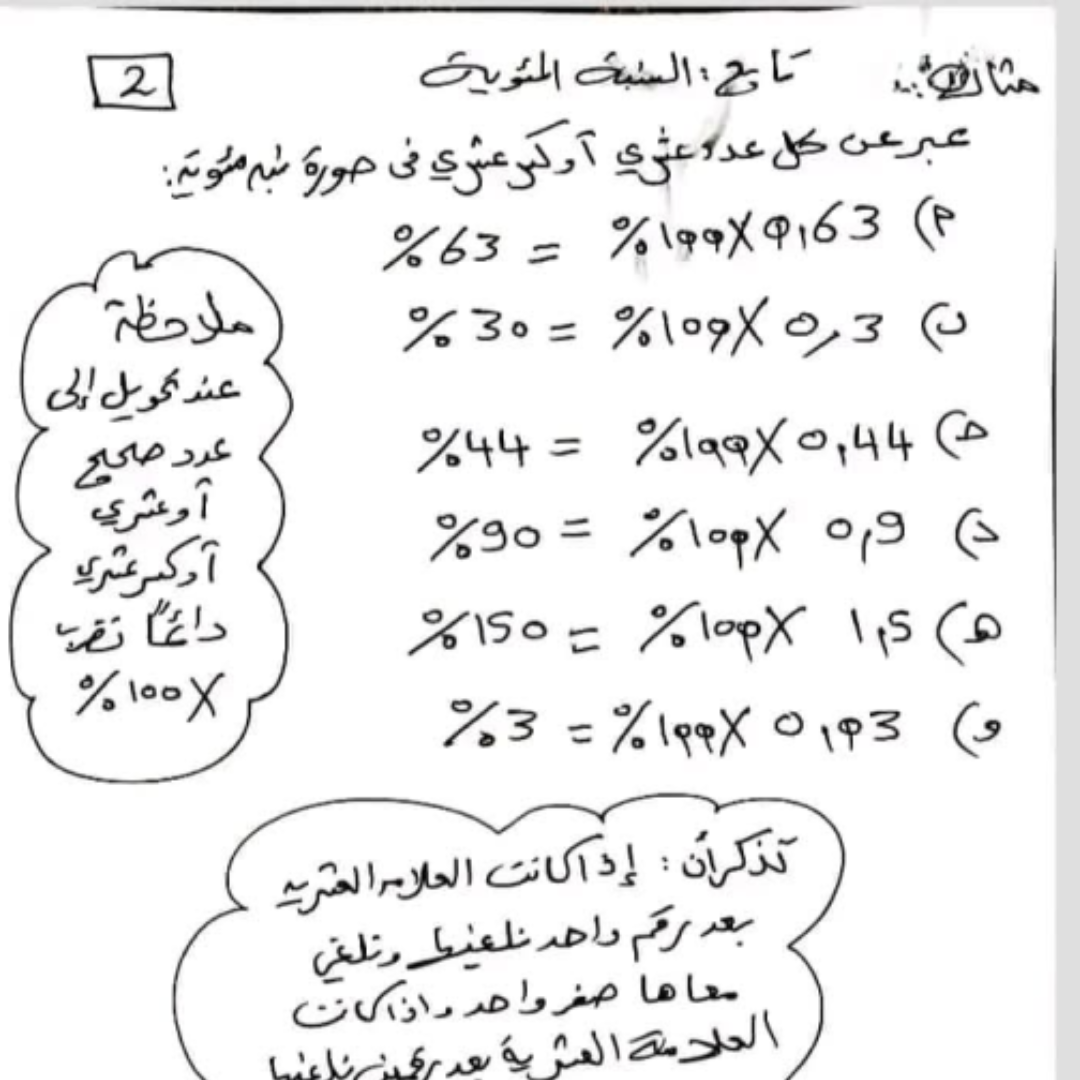 2
تابع: النسبة المئوية
مثال
عبر عن كل عدد عشري أو كسر عشري في صورة نسبه مئوية:
م) 0,63 X 100% = 63%
ب) 0,3 X 100% = 30%
ح) 0,44 X 100% = 44%
د) 0,9 X 100% = 90%
ه) 1,5 X 100% = 150%
و) 0,03 X 100% = 3%
ملاحظة
عند تحويل إلى
عدد صحيح
أو عشري
أو كسر عشري
دائماً نضرب
X 100%
تذكر أن: إذا كانت العلامه العشريه
بعد رقم واحد نلغيها ونلغي
معاها صفر واحد واذا كانت
العلامة العشرية بعد رقمين نلغيها